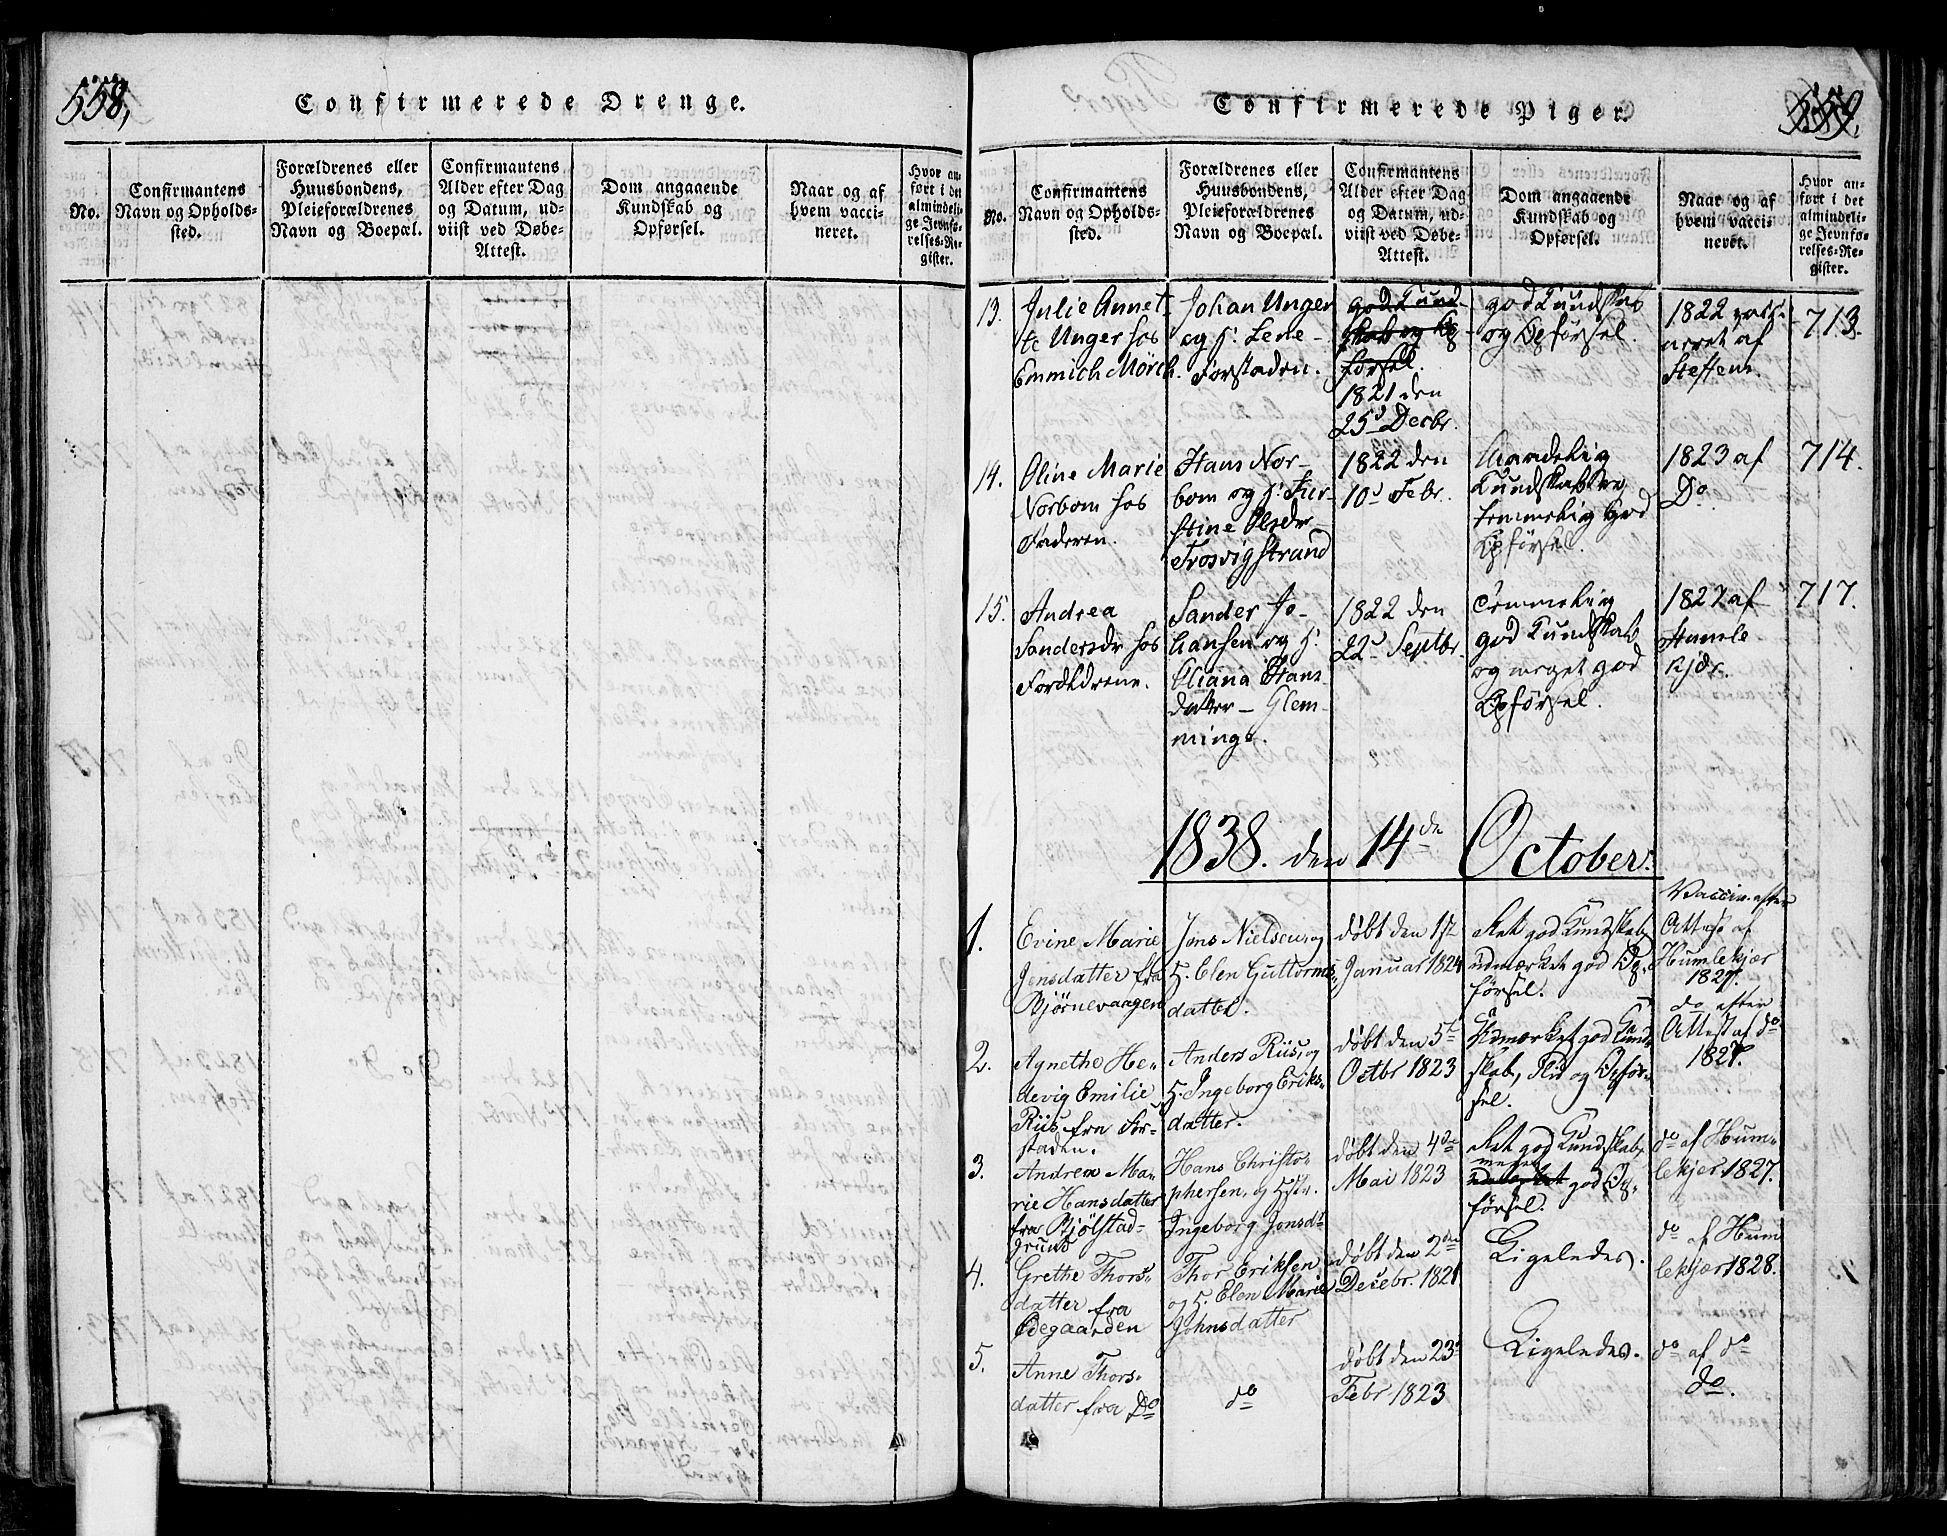 558,
Confirmerede Drenge.
No.
Confirmantens
Navn og Opholds-
sted.
Forældrenes eller
Huusbondens,
Pleieforældrenes
Navn og Boepæl.
Confirmantens
Alder efter Dag
og Datum, ud-
viist ved Døbe-
Attest.
Dom angaaende
Kundskab og
Opførsel.
Naar og af
hvem vacci-
neret.
Hvor an-
ført i det
almindeli-
ge Jevnfø-
relses-Re-
gister.
Confirmerede Piger.
559.
No.
Confirmantens
Navn og Opholds-
sted.
Forældrenes eller
Huusbondens,
Pleieforældrenes
Navn og Boepæl.
Confirmantens
Alder efter Dag
og Datum, ud-
viist ved Døbe-
Attest.
Dom angaaende
Kundskab og
Opførsel.
Naar og af
hvem vacci-
neret.
Hvor an-
ført i det
almindeli-
ge Jevnfø-
relses-Re-
gister.
13.
Julie Annet-
te Unger hos
Emmich Mörch.
Johan Unger
og H. Lene -
Forstaden.
god Kund-
skab og Op-
førsel.
1821 den
25d Decbr.
god Kundskab
og Opførsel.
1822 vacci-
neret af
Steffens.
713.
14.
Oline Marie
Norbom hos
Faderen.
Hans Nor-
bom og H. Kier-
stine Olsdr
Trosvigstrand
1822 den
10d Febr.
Maadelig
Kundskab og
temmelig god
Opførsel.
1823 af
Do
714.
15.
Andrea
Sandersdr hos
Forældrene.
Sander Jo-
hansen og H.
Oliana Hans-
datter - Glem-
minge.
1822 den
22d Septbr.
Temmelig
god Kundskab
og meget god
Opførsel.
1827 af
Humle
kjær.
717.
1838. den 14de October.
1.
Evine Marie
Jensdatter fra
Bjørnevaagen
Jens Nielsen, og
H. Elen Guttorms-
datter.
døbt den 1ste
Januar 1824
Ret god Kundskab,
udmærket god Op-
førsel.
Vaccin. efter
Attest af
Humlekjær
1827.
2.
Agnethe He-
devig Emilie
Riis fra For-
staden.
Anders Riis, og
H. Ingeborg Eriks-
datter.
døbt den 5te
Octbr 1823
Udmærket god Kund-
skab, Flid og Opfør-
sel.
do efter
Attest af do
1827.
3.
Andrea Ma-
rie Hansdatter
fra Bjölstad-
grund
Hans Christo-
phersen, og Hstr.
Ingeborg Jensdt
døbt den 4de
Mai 1823
Ret god Kundskab,
meget
udmærket god Op-
førsel.
do af Hum-
lekjer 1827.
4.
Grethe Thors-
datter fra
Ødegaarden
Thor Eriksen,
og H. Elen Marie
Johnsdatter
døbt den 2den
Decebr. 1821
Ligeledes.
do af Hum
lekjær 1828.
5.
Anne Thors-
datter fra Do
do
døbt den 23d
Febr 1823
Ligeledes.
do af do
do.